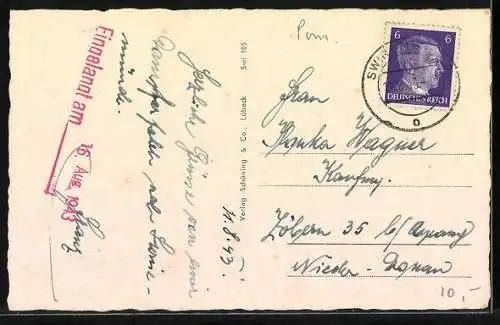 Eingelangt am
16. Aug. 1943
Herzliche Grüsse von einer
Dampferfahrt nach Swine-
münde.
11.8.43.
Verlag Schöning & Co., Lübeck Swi 105
Pom.
6 6
DEUTSCHES REICH
SW
b
Frau
Hanka Wagner
Kaufm.
Zöbern 35 b/ Aspang
Nieder-Donau
10,-